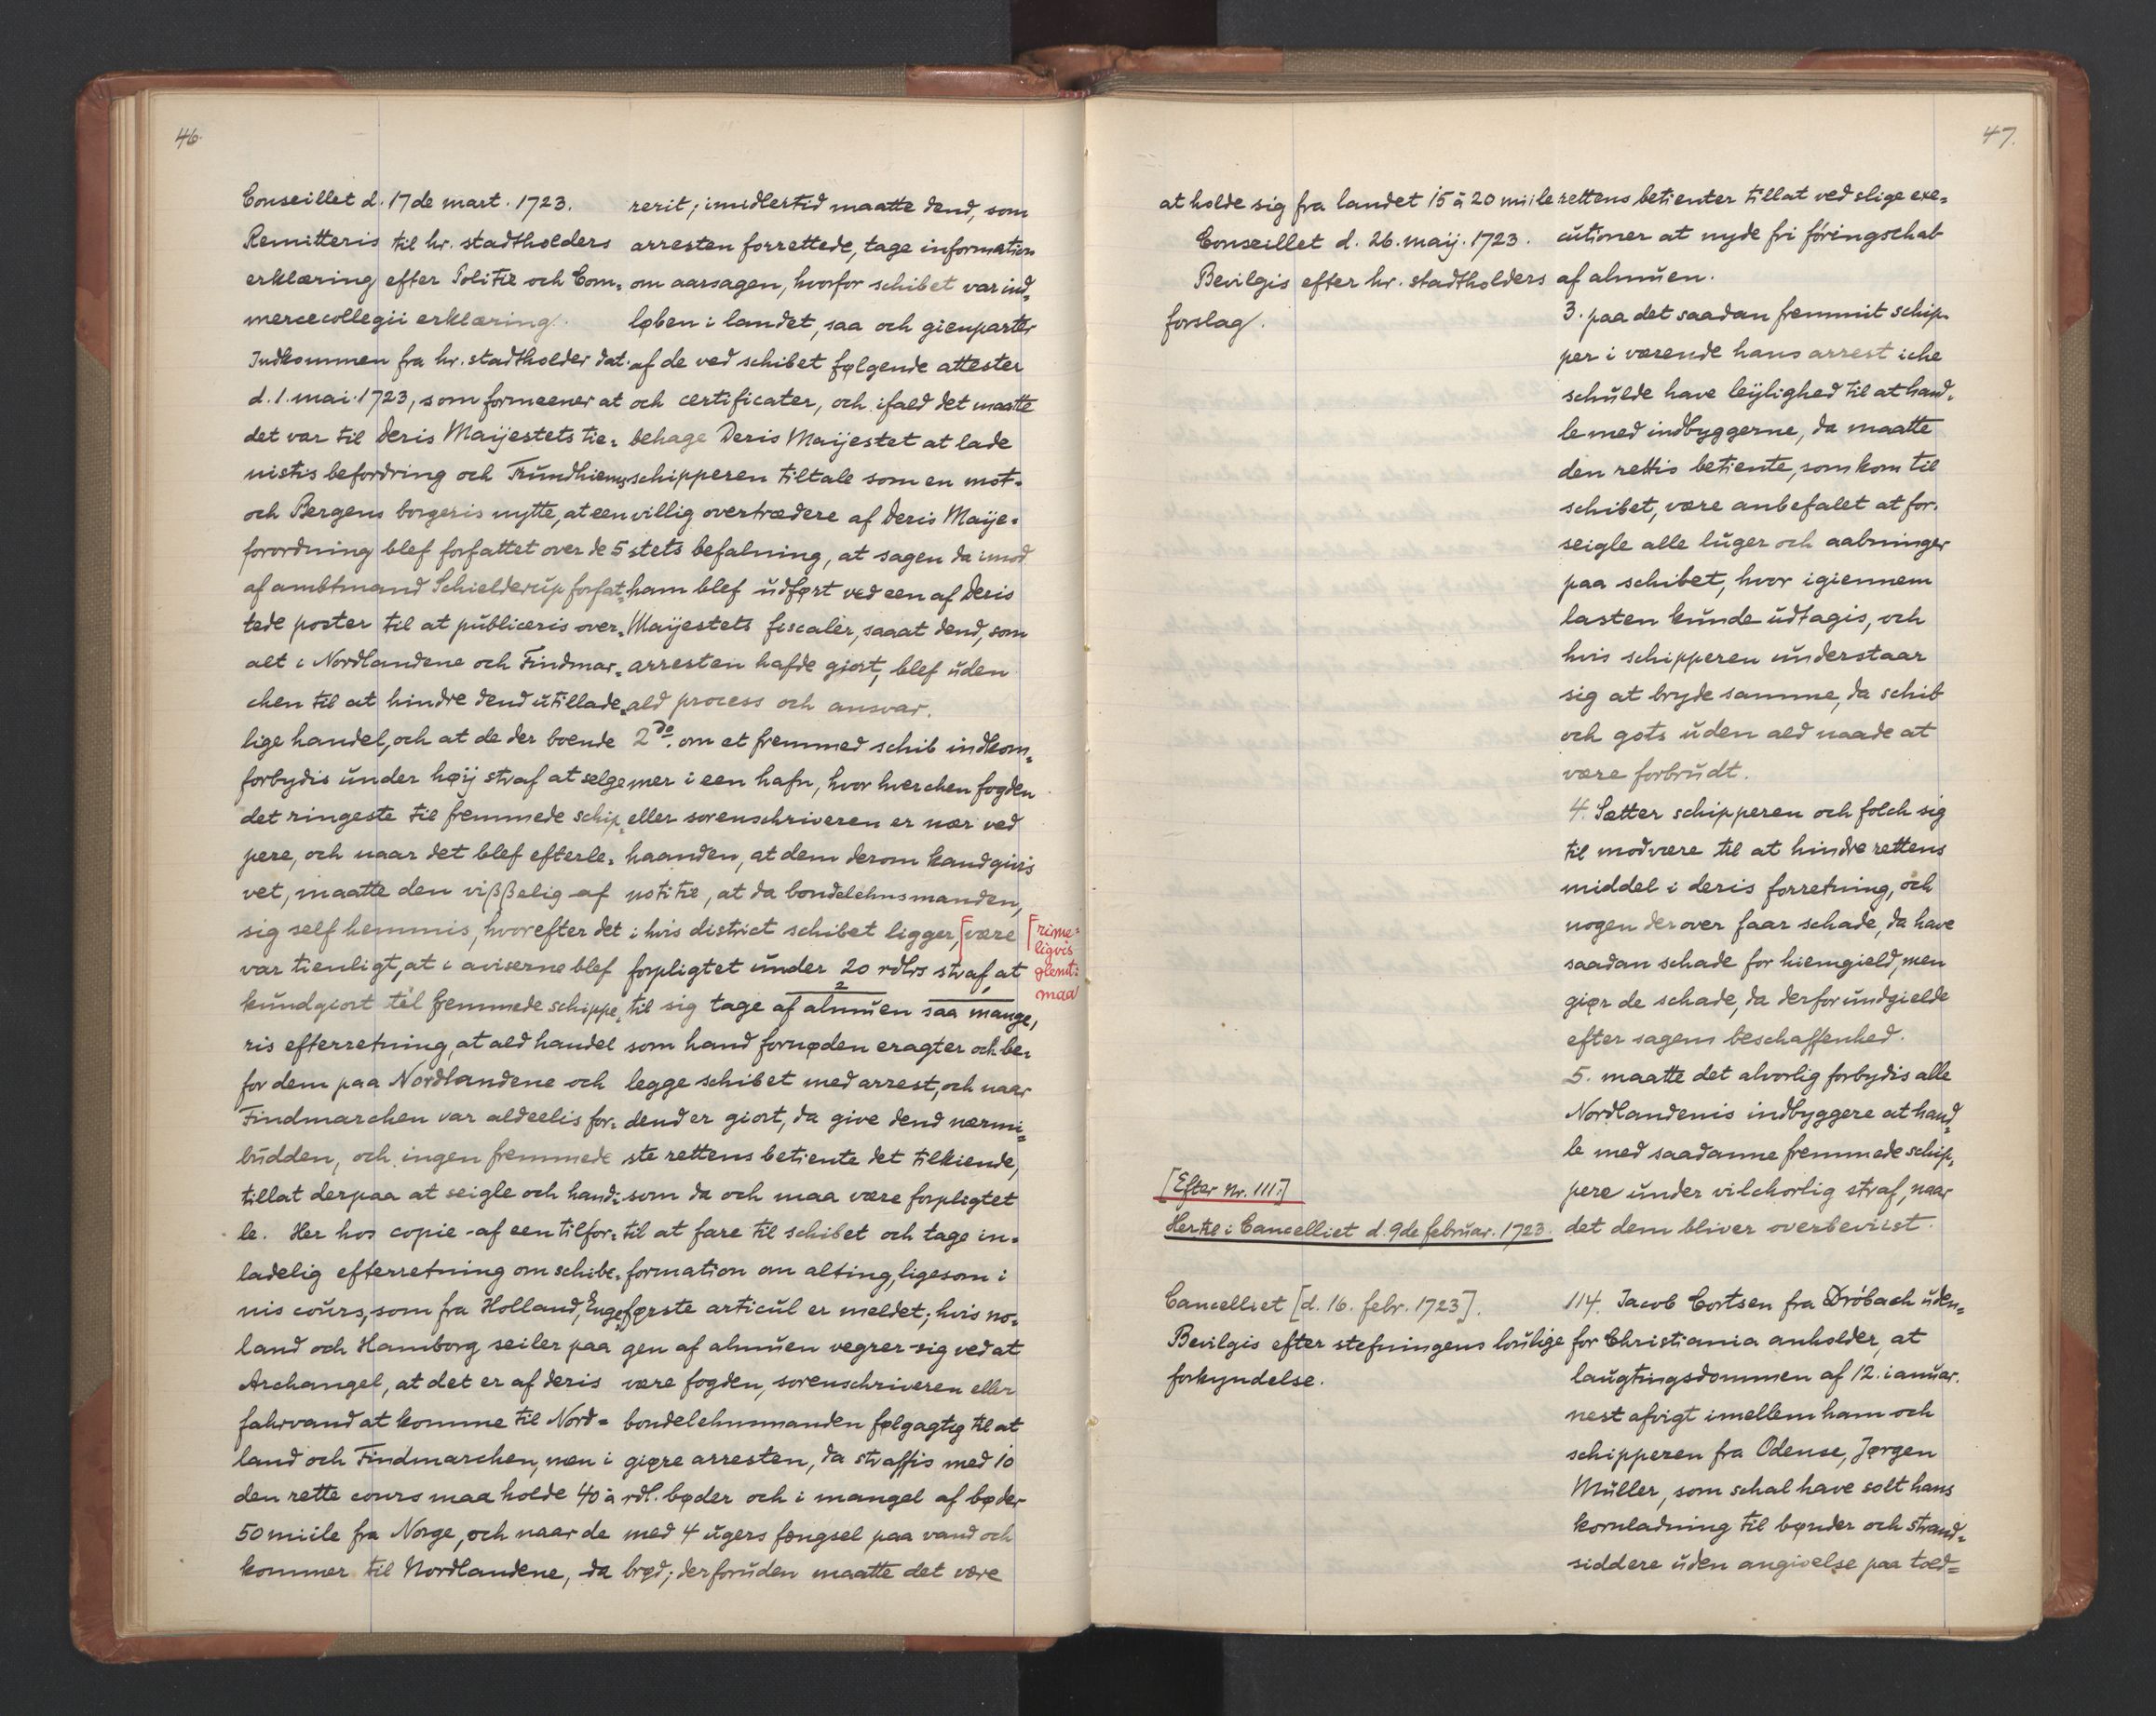 46.
Conseillet d. 17de mart. 1723.
Remitteris til hr. stadtholders
erklæring efter Politie och Com-
mercecollegii erklæring.
Indkommen fra hr. stadtholder dat.
d. 1. mai 1723, som formeener at
det var til Deris Maijestets tie-
nistis befordring och Trundhiems
och Bergens borgeris nytte, at een
forordning blef forfattet over de 5
af ambtmand Schielderup forfat-
tede poster til at publiceris over-
alt i Nordlandene och Findmar-
chen til at hindre dend utillade-
lige handel, och at de der boende
forbydis under høij straf at selge
det ringeste til fremmede schip-
pere, och naar det blef efterle-
vet, maatte den vißßelig af
sig self hemmis, hvorefter det
var tienligt, at i aviserne blef
kundgiort til fremmede schippe-
ris efterretning, at ald handel
for dem paa Nordlandene och
Findmarchen var aldeelis for-
budden, och ingen fremmede
tillat derpaa at seigle och hand-
le. Her hos copie af een tilfor-
ladelig efterretning om schibe-
nis cours, som fra Holland, Enge-
land och Hamborg seiler paa
Archangel, at det er af deris
fahrvand at komme til Nord-
land och Findmarchen, men i
den rette cours maa holde 40 à
50 miile fra Norge, och naar de
kommer til Nordlandene, da
rerit; imidlertid maatte dend, som
arresten forrettede, tage information
om aarsagen, hvorfor schibet var ind-
løben i landet, saa och gienparter
af de ved schibet følgende attester
och certificater, och ifald det maatte
behage Deris Maijestet at lade
schipperen tiltale som en mot-
villig overtrædere af Deris Maije-
stets befalning, at sagen da imod
ham blef udført ved een af Deris
Maijestets fiscaler, saaat dend, som
arresten hafde giort, blef uden
ald process och ansvar.
2do. om et fremmed schib indkom-
mer i een hafn, hvor hverchen fogden
eller sorenschriveren er nær ved
haanden, at dem derom kand givis
notitie, at da bondelehnsmanden,
i hvis district schibet ligger, [være
[rime-
ligvis
glemt:
maa
forpligtet under 20 rdlrs straf, at
2
til sig tage af almuen saa mange,
som hand fornøden eragter och be-
legge schibet med arrest, och naar
dend er giort, da give dend nærmi-
ste rettens betiente det tilkiende,
som da och maa være forpligtet
til at fare til schibet och tage in-
formation om alting, ligesom i
første articul er meldet; hvis no-
gen af almuen vegrer sig ved at
være fogden, sorenschriveren eller
bondelehnsmanden følgagtig til at
giøre arresten, da straffis med 10
rdl. bøder och i mangel af bøder
med 4 ugers fengsel paa vand och
brød; derforuden maatte det være
47.
at holde sig fra landet 15 à 20 miile
Conseillet d. 26. maij. 1723.
Bevilgis efter hr. stadtholders
forslag.
[Efter Nr. 111:]
Hertil i Cancelliet d. 9de februar. 1723.
Cancelliet [d. 16. febr. 1723].
Bevilgis efter stefningens loulige
forkyndelse.
rettens betienter tillat ved slige exe-
cutioner at nyde fri føringschab
af almuen.
3. paa det saadan fremmit schip-
per i værende hans arrest iche
schulde have leijlighed til at hand-
le med indbyggerne, da maatte
den rettis betiente, som kom til
schibet, være anbefalet at for-
seigle alle luger och aabninger
paa schibet, hvor igiennem
lasten kunde udtagis, och
hvis schipperen understaar
sig at bryde samme, da schib
och gots uden ald naade at
være forbrudt.
4. Sætter schipperen och folch sig
til modvære til at hindre rettens
middel i deris forretning, och
nogen derover faar schade, da have
saadan schade for hiemgield, men
giør de schade, da derfor undgielde
efter sagens beschaffenhed.
5. maatte det alvorlig forbydis alle
Nordlandenis indbyggere at hand-
le med saadanne fremmede schip-
pere under vilchorlig straf, naar
det dem bliver overbeviist.
114. Jacob Cortsen fra Drøbach uden-
for Christiania anholder, at
laugtingsdommen af 12. januar.
nest afvigt imellem ham och
schipperen fra Odense, Jørgen
Müller, som schal have solt hans
kornladning til bønder och strand-
siddere uden angivelse paa told-